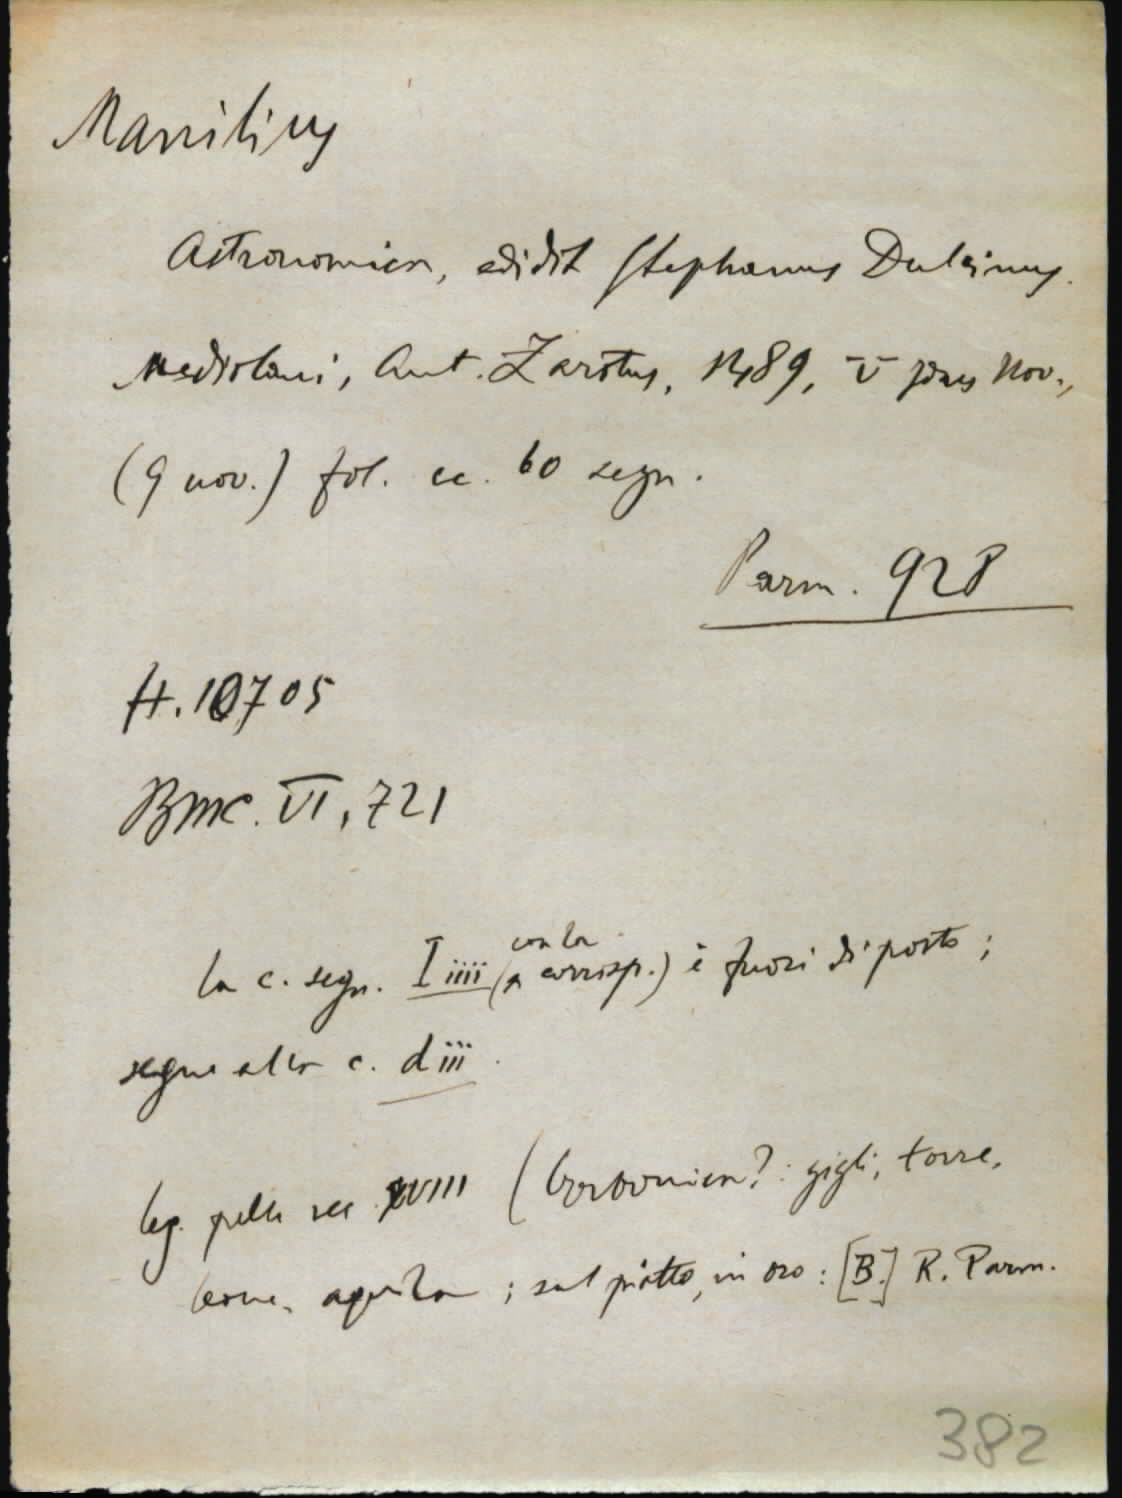 Manilius
Astronomica, edidit Stephanus Dulcinus.
Mediolani, Ant. Zarotus, 1489, V idus Nov.,
(9 nov.) fol. cc. 60 segn.
Parm. 928
H. 10705
BMC. VI, 721
la c. segn. I iiii (con la corrisp.) è fuori di posto;
segue alla c. d iii.
leg. pelle sec. XVIII (borbonica? : gigli, torre,
leone, aquila ; sul piatto, in oro : [B.] R. Parm.
382